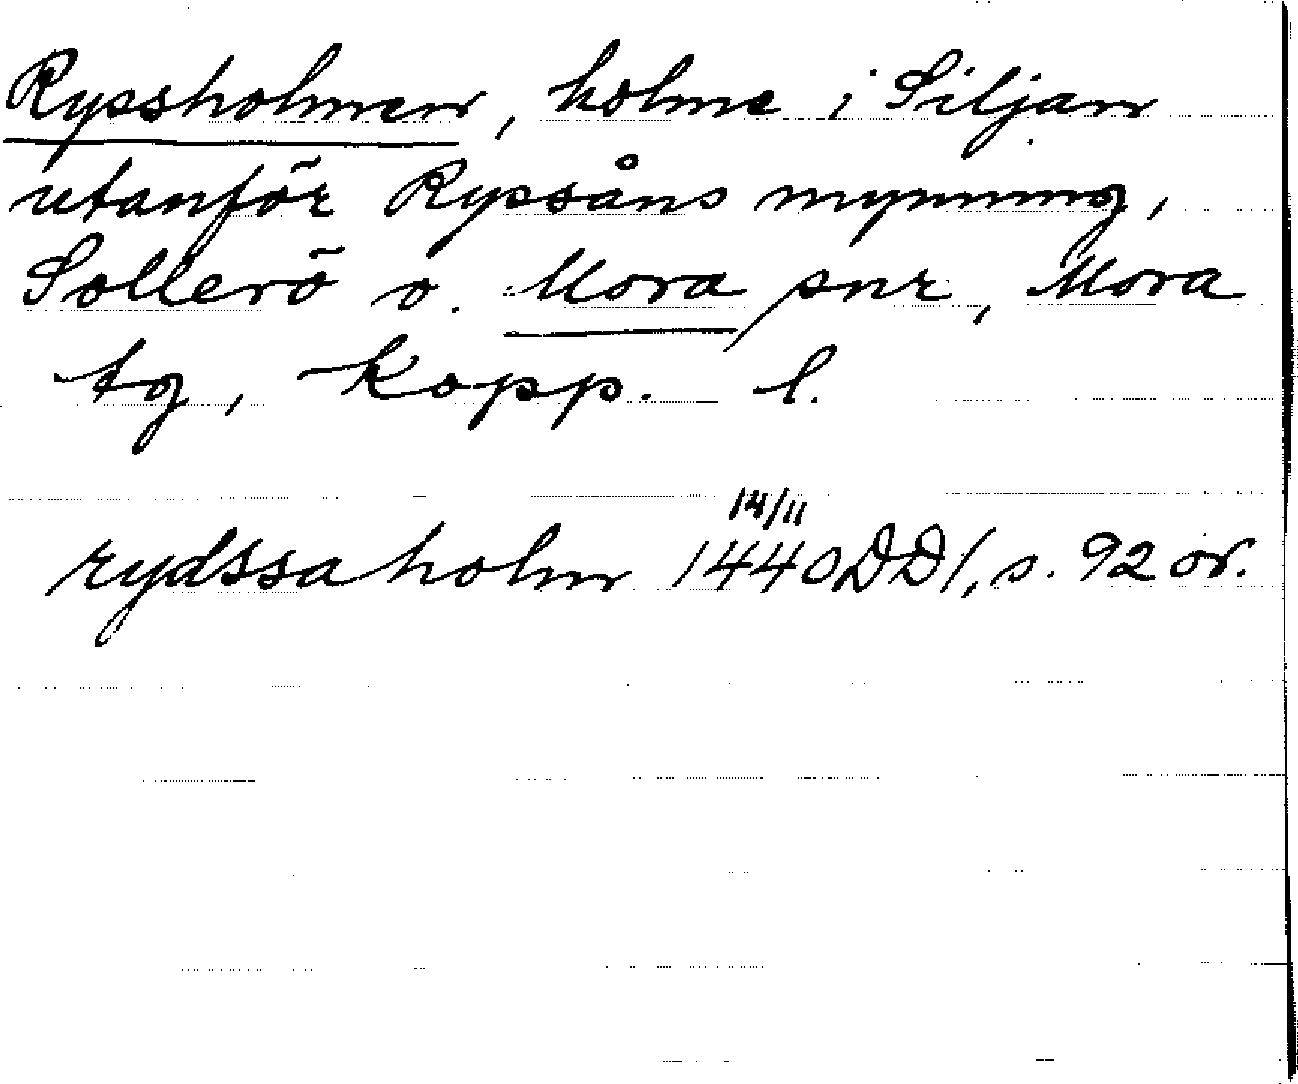 Ryssholmen, holme i Siljan
utanför Ryssåns mynning,
Sollerö o. Mora snr, Mora
tg, Kopp. l.
14/11
rydssaholm 1440 DD 1, s. 92 or.